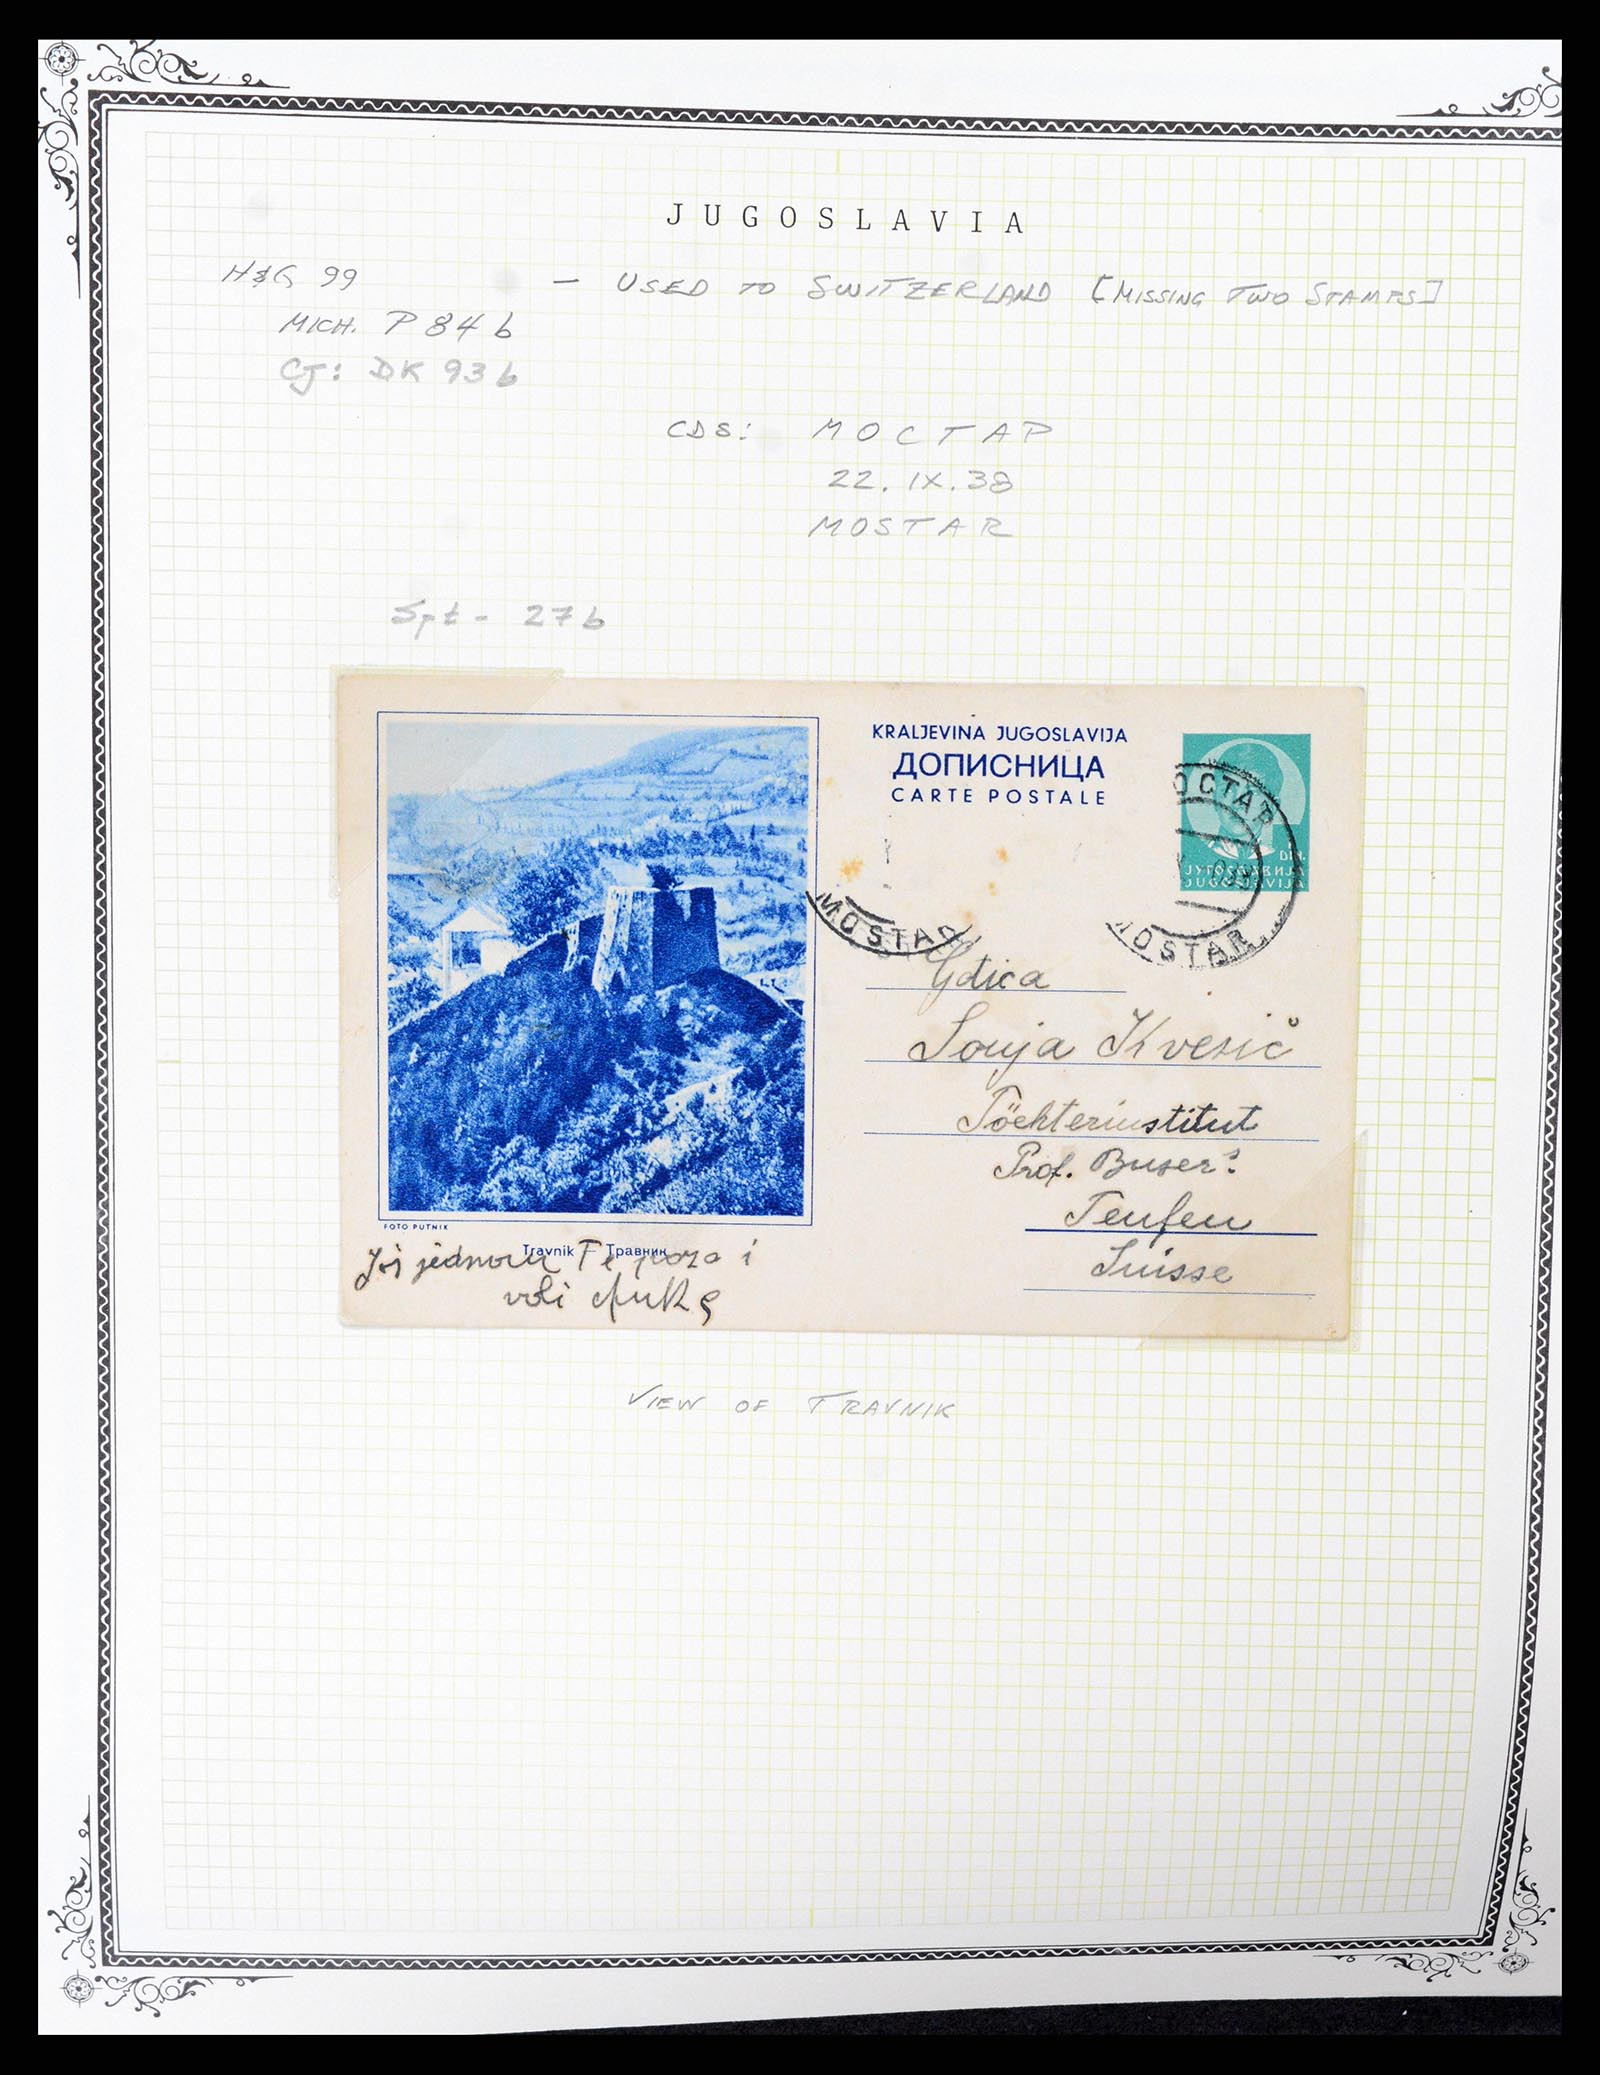 JUGOSLAVIA
H&G 99 - USED TO SWITZERLAND [MISSING TWO STAMPS]
MICH. P 84 b
CJ: DK 93 b
CDS: МОСТАР
22. IX. 38
MOSTAR
Spt - 27 b
KRALJEVINA JUGOSLAVIJA
ДОПИСНИЦА
CARTE POSTALE
ОСТАР
DIN.
ЈУГОСЛАВИЈА
JUGOSLAVIJA
MOSTAR
MOSTAR
Gdica
Sonja Kvesić
Töchterinstitut
Prof. Buser's
Teufen
Suisse
FOTO PUTNIK
Travnik - Травник
Još jednom Te i
voli
VIEW OF TRAVNIK